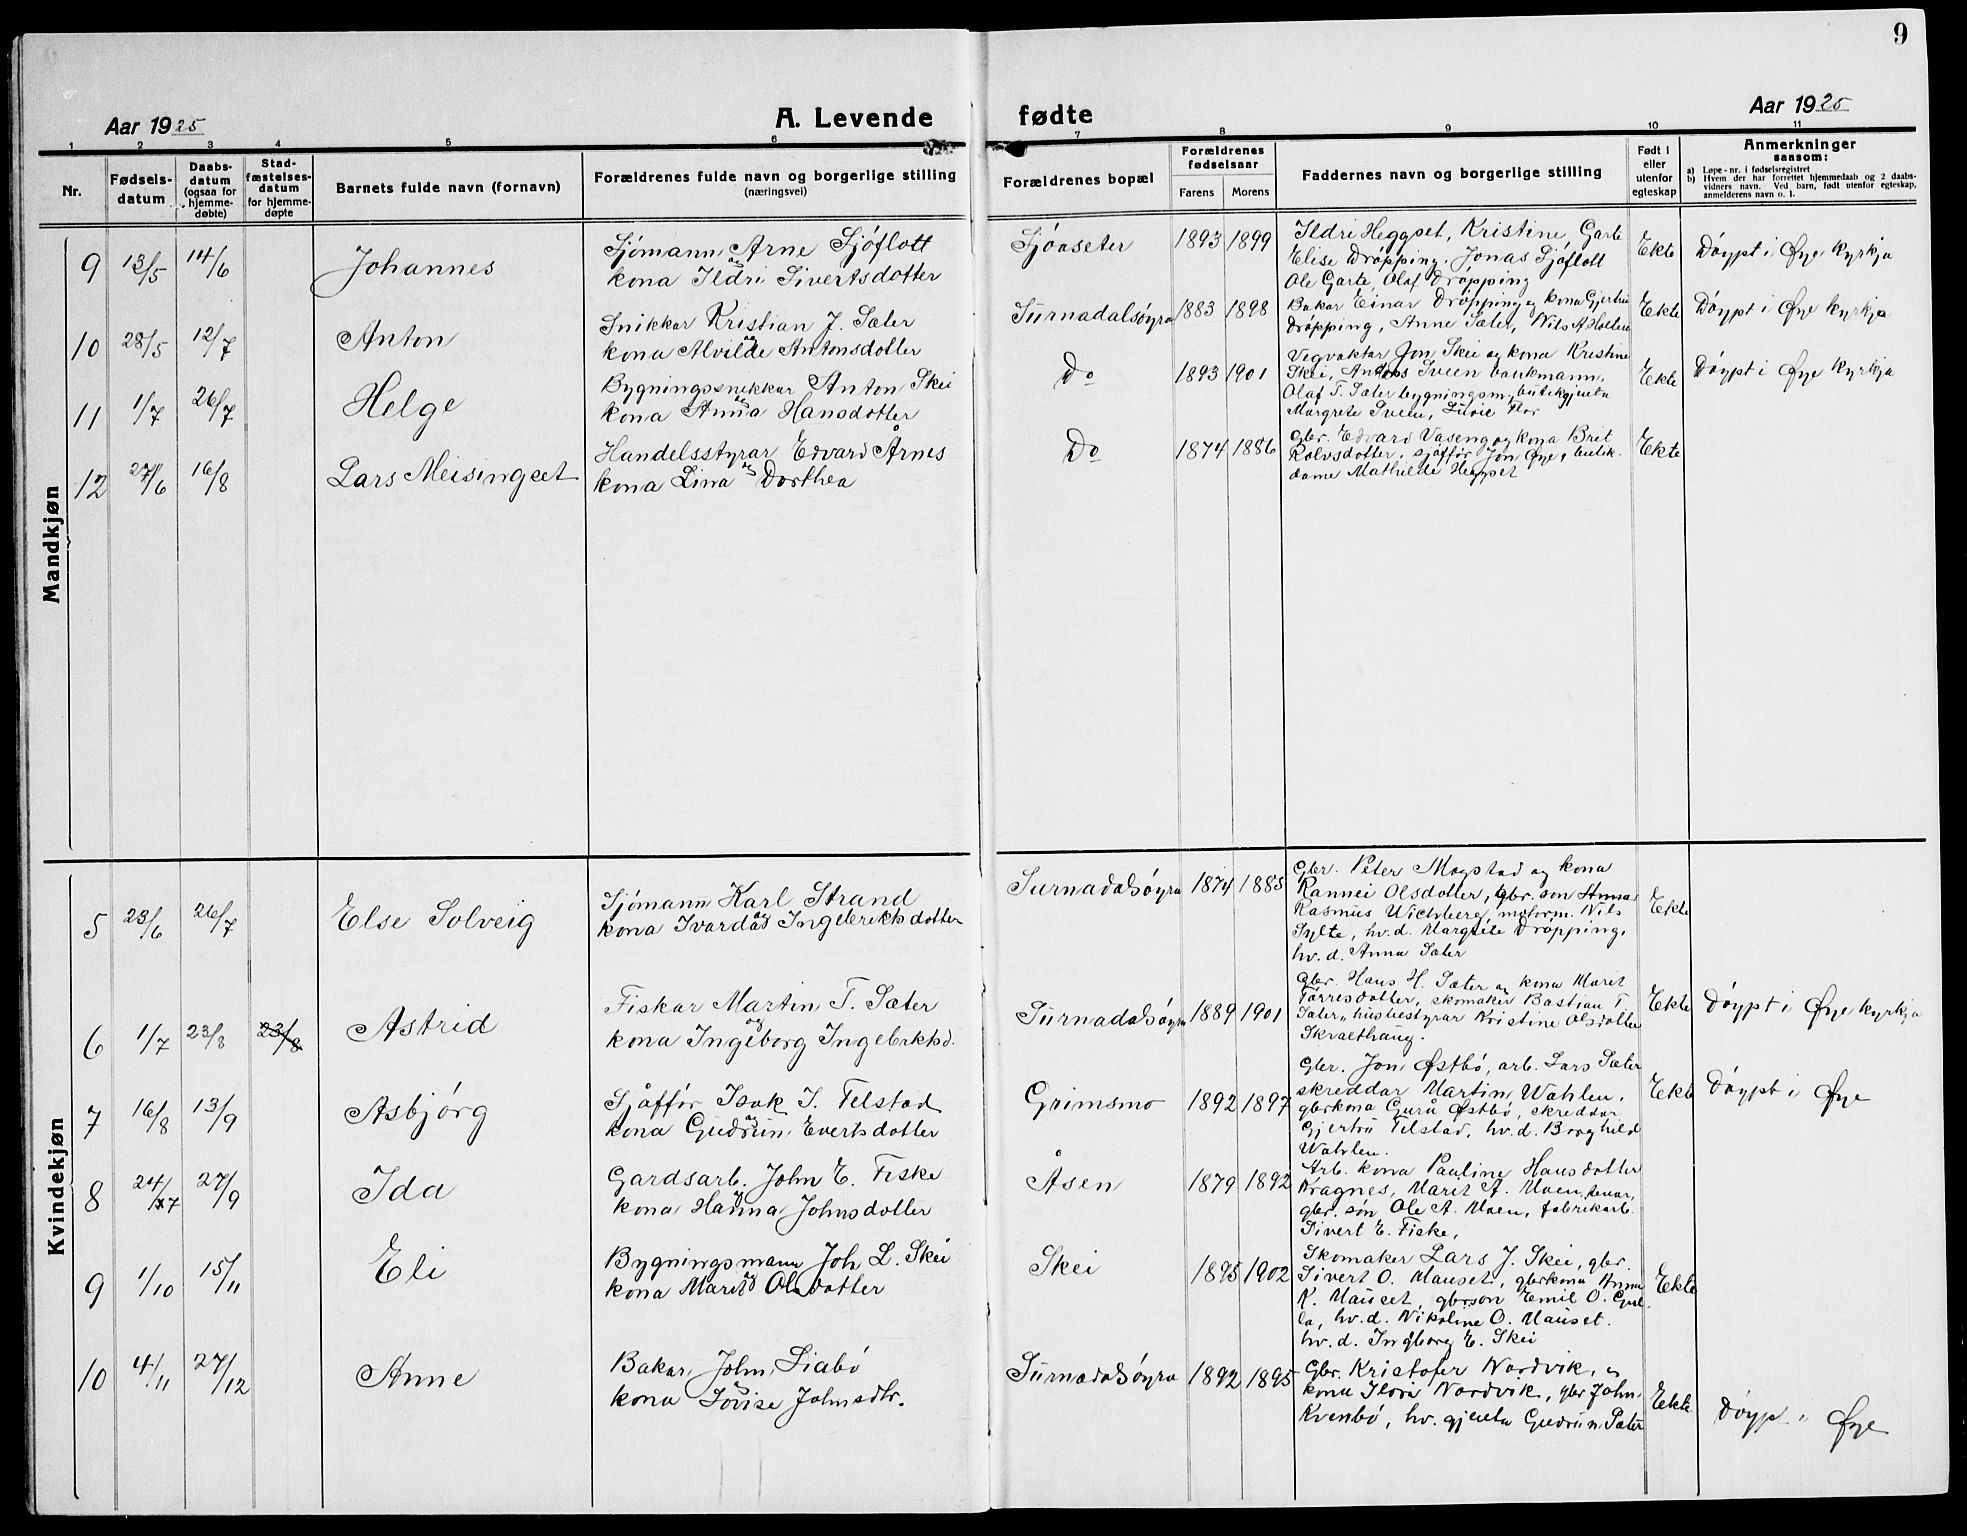 9
Aar 1925
A. Levende fødte
Aar 1925
1 2 3 4 5 6 7 8 9 10 11
Nr.
Fødsels-
datum
Daabs-
datum
(ogsaa for
hjemme-
døbte)
Stad-
fæstelses-
datum
for hjemme-
døpte
Barnets fulde navn (fornavn)
Forældrenes fulde navn og borgerlige stilling
(næringsvei)
Forældrenes bopæl
Forældrenes
fødselsaar
Farens Morens
Faddernes navn og borgerlige stilling
Født i
eller
utenfor
egteskap
Anmerkninger
saasom:
a) Løpe-nr. i fødselsregistret
b) Hvem der har forrettet hjemmedaab og 2 daabs-
vidners navn. Ved barn, født utenfor egteskap,
anmelderens navn o. l.
Mandkjøn
9 13/5 14/6 Johannes
Sjømann Arne Sjøflott
og
kona Ildri Sivertsdotter
Sjöaseter 1893 1899
Ildri Heggset, Kristine Garte
Elise Dröpping, Jonas Sjöflott
Ole Garte, Olaf Dröpping
Ekte Döypt i Øye kyrkja
10 28/5 12/7 Anton
Snikkar Kristian J. Sæter
og
kona Alvilde Antonsdotter
Surnadalsöyra 1883 1898
Bakar Einar Dröpping og kona Gjertru
Dröpping, Anne Sæter, Nils A Holten
Ekte Döypt i Øye kyrkja
11 1/7 26/7 Helge
Bygningssnekkar Anton Skei
og
kona Anna Hansdotter
Do 1893 1901
Vegvaktar Jon Skei og kona Kristine
Skei, Anders Sveen bankmann,
Olaf T. Sæter bygningsm, butikgjenta
Margrete Sveen, Flor
Ekte Döypt i Øye kyrkja
12 27/6 16/8 Lars Meisingset
Handelsstyrar Edvard Årnes
og
kona Lina Dorthea
Do 1874 1886
gbr. Edvard Vaseng og kona Brit
Rolvsdotter, sjåfför Jon Øye, butik-
dame Mathilde Heggset
Ekte
Kvindekjøn
5 23/6 26/7 Else Solveig
Sjömann Karl Strand
og
kona Ivarda Ingebrektsdotter
Surnadalsöyra 1874 1885
Gbr. Peter Mogstad og kona
Rannei Olsdotter, gbr. son
Rasmus Wichberg, motorm. Nils
Sylte, hv.d. Margrete Dröpping,
hv. d. Anna Sæter
Ekte
6 1/7 23/8 23/8 Astrid
Fiskar Martin T. Sæter
og
kona Ingeborg Ingebrektsd.
Surnadalsöyra 1889 1901
gbr. Hans H. Sæter og kona Marit
Torresdotter, skomaker Bastian T.
Sæter, husbestyrar Kristine Olsdotter
Skralthaug.
Ekte Döypt i Øye kyrkja
7 16/8 13/9 Asbjörg
Sjåfför Isak I. Telstad
og
kona Gudrun Evertsdotter
Grimsmo 1892 1897
Gbr. Jon Østbö, arb. Lars Sæter
skreddar Martin Wahlen,
gbrkona Guru Østbö, skreddar
Gjertru Telstad, hv.d. Borghild
Wahlen.
Ekte Döypt i Øye
8 24/7 27/9 Ida
Gardsarb. John E. Fiske
og
kona Hanna Johnsdotter
Åsen 1879 1892
Arb. kona Pauline Hansdotter
Kragnes, Marit A. Moen,
gbr. søn Ole A. Moen, fabrikarb.
Sivert E. Fiske,
9 1/10 15/11 Eli
Bygningsmann Joh L. Skei
og
kona Marit Olsdotter
Skei 1895 1902
Skomaker Lars J. Skei, gbr.
Sivert O. Mauset, gbrkona Anna
K. Mauset, gbrson Emil O. Gul-
la, hv.d. Nikoline O. Mauset.
hv. d. Ingborg E. Skei
Ekte
10 4/11 27/12 Anne
Bakar John Siabö
og
kona Lovise Johnsdtr.
Surnadalsöyra 1892 1895
Gbr. Kristofer Nordvik, og
kona Ildri Nordvik, gbr John
Kvenbö, hv. gjenta Gudrun Sæter
Ekte Döyp. i Øye